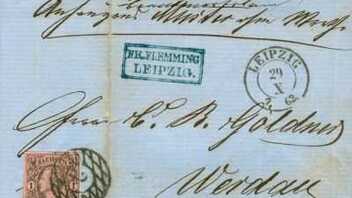 Anhängend Muster ohne Werth
FR. FLEMMING
LEIPZIG.
LEIPZIG
29
X
Herrn C. B. Göldner
Werdau
SACHSEN
1
1
2